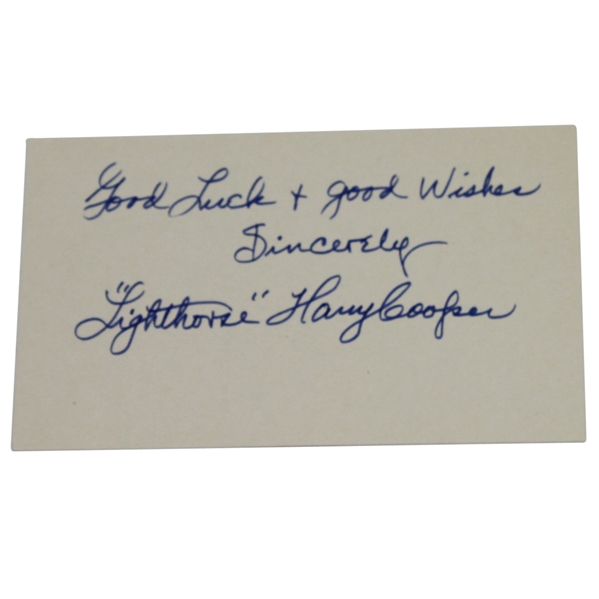 Good Luck + good Wishes
Sincerely
"Lighthorse" Harry Cooper